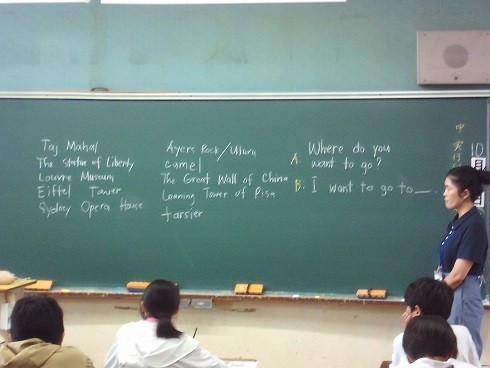 Taj Mahal
The Statue of Liberty
Louvre Museum
Eiffel Tower
Sydney Opera House
Ayers Rock/Uluru
camel
The Great Wall of China
Leaning Tower of Pisa
tarsier
A: Where do you
want to go?
B: I want to go to __.
中
実行
10
月